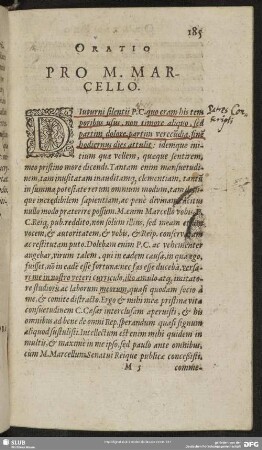 185
ORATIO
PRO M. MAR-
CELLO.
DIuturni silentii P.C. quo eram his tem
poribus usus, non timore aliquo, sed
partim dolore, partim verecũdia, finẽ
hodiernus dies attulit: idemque ini-
tium quæ vellem, quæque sentirem,
meo pristino more dicendi. Tantam enim mansuetudi-
nem, tam inusitatam inauditamq; clementiam, tantũ
in summa potestate rerum omnium modum, tam
que incredibilem sapientiam, ac penè divinam
nullo modo præterire possum. M. enim Marcello vobis P.
C. Reiq; pub. reddito, non solùm illius, sed meam etiam
vocem, & autoritatem, & vobis, & Reip. conservatam
ac restitutam puto. Dolebam enim P.C. ac vehementer
angebar, virum talem, qui in eadem causa, in qua ego,
fuisset, nõ in eadẽ esse fortuna: nec fas esse ducebã, versa-
ri me in nostro veteri curriculo, illo æmulo atq; imitato-
re studiorũ ac laborum meorum, quasi quodam socio à
me, & comite distracto. Ergo & mihi meæ pristinæ vitæ
consuetudinem C. Cæsar interclusam aperuisti, & his
omnibus ad bene de omni Rep. sperandum quasi signum
aliquod sustulisti. Intellectum est enim mihi quidem in
multis, & maximè in me ipso, sed paulò antè omnibus,
cùm M. Marcellum Senatui Reique publicæ concessisti,
M 5 comme-
SLUB